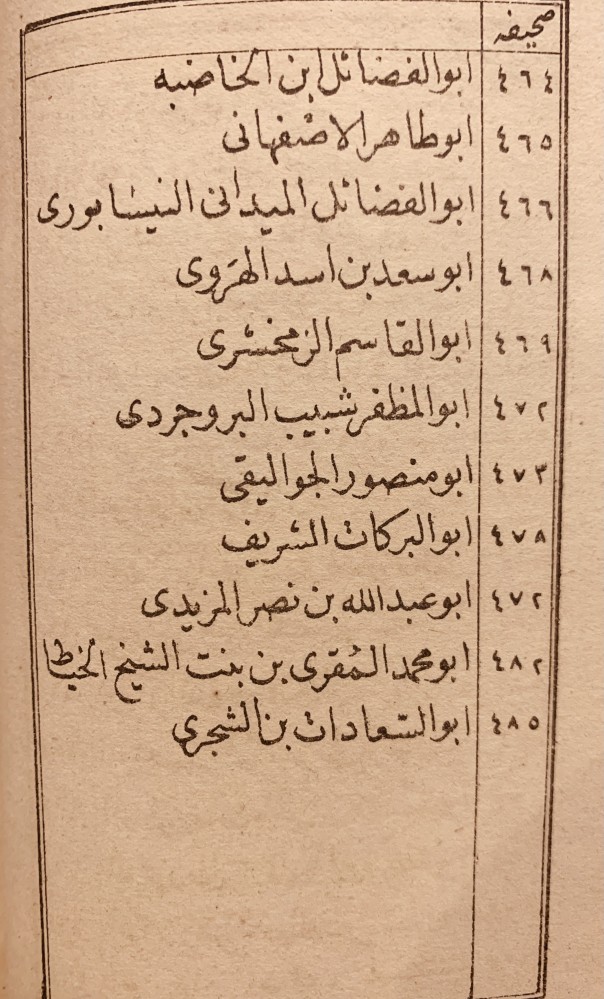 صحيفه
٤٦٤ ابوالفضائل ابن الخاضبه
٤٦٥ ابوطاهر الاصفهانى
٤٦٦ ابوالفضائل الميدانى النيسابورى
٤٦٨ ابوسعد بن اسد الهروى
٤٦٩ ابوالقاسم الزمخشرى
٤٧٢ ابوالمظفر شبيب البروجردى
٤٧٣ ابومنصور الجواليقى
٤٧٨ ابوالبركات الشريف
٤٧٢ ابوعبدالله بن نصر المزيدى
٤٨٢ ابومحمد المقرى بن بنت الشيخ الخيطا
٤٨٥ ابوالسعادات بن الشجرى